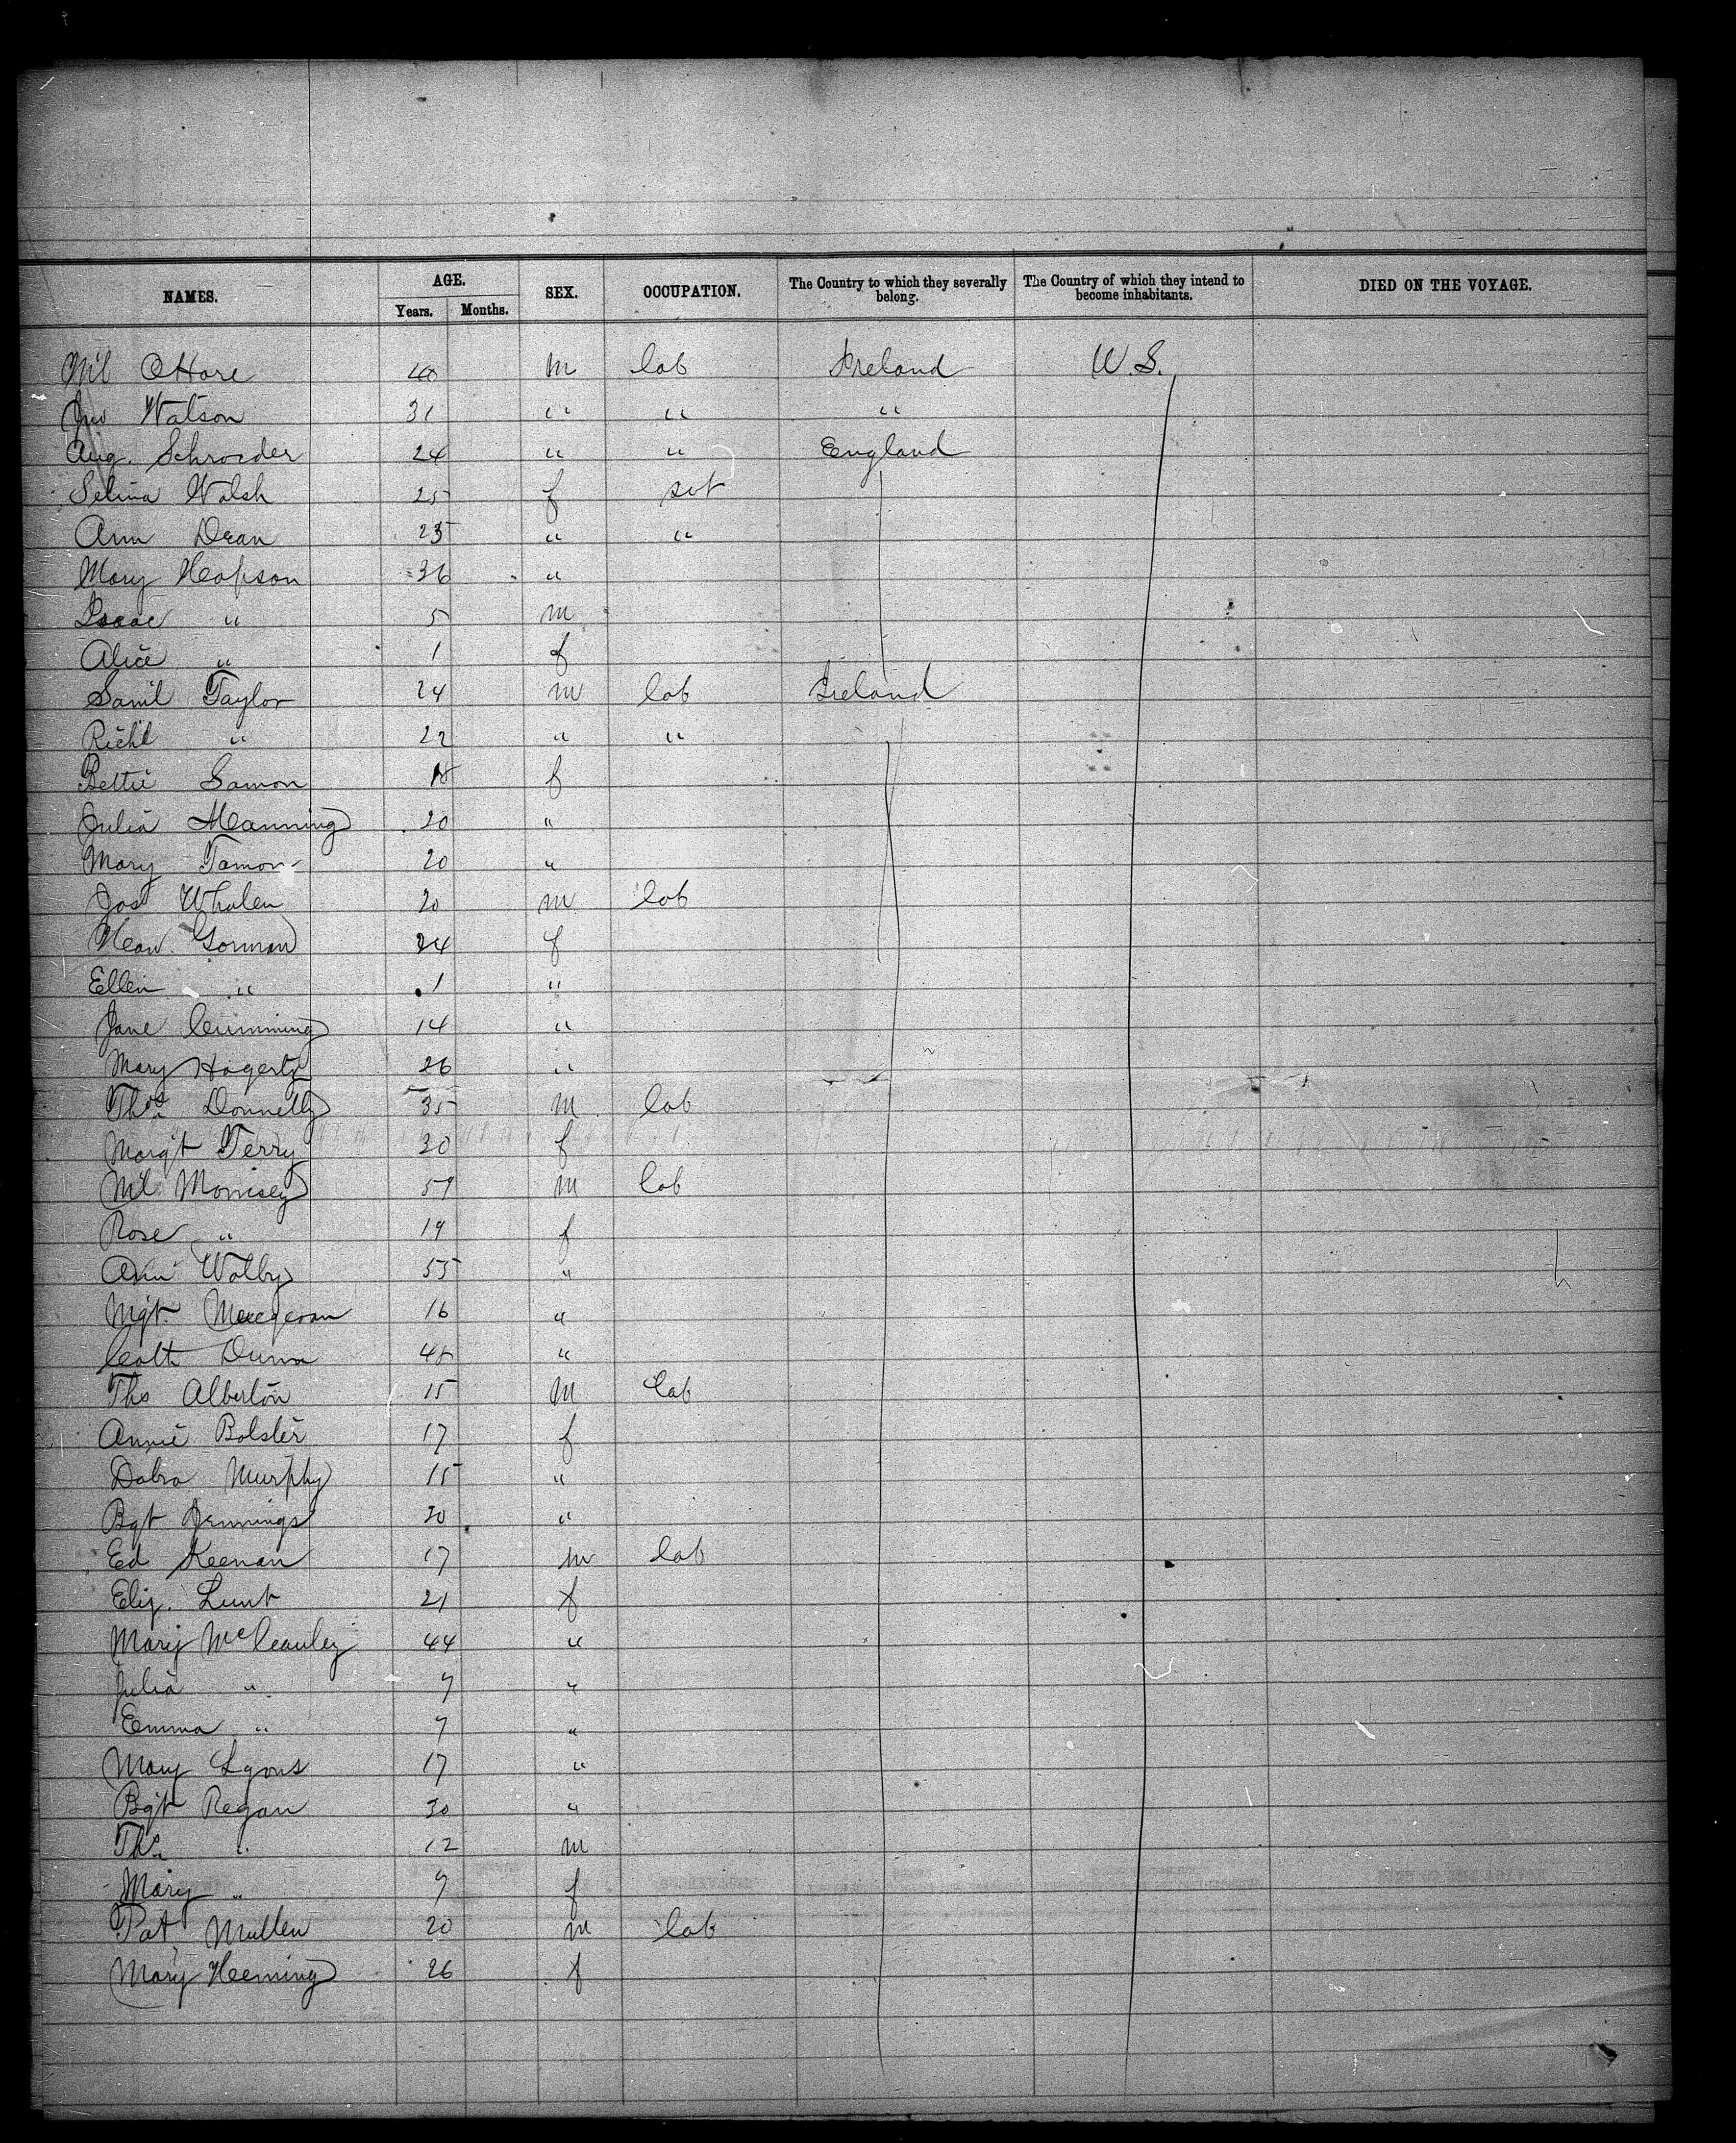 NAMES. AGE. SEX. OCCUPATION. The Country to which they severally belong. The Country of which they intend to become inhabitants. DIED ON THE VOYAGE.
Years. Months.
Ml OHare 40 m lab Ireland U.S.
Jno Watson 31 " " "
Aug. Schroeder 24 " " England
Selina Walsh 25 f svt
Ann Dean 25 " "
Mary Heapson 36 "
Isaac " 5 m
Alice " 1 f
Saml Taylor 24 m lab Ireland
Richd " 22 " "
Bettie Samon 18 f
Julia Manning 20 "
Mary 20 "
Jos Whalen 20 m lab
Gorman 24 f
Ellen " 1 "
Jane Cumming 14 "
Mary Hogerty 26 "
Thos Donnelly 35 m lab
Margt Terry 30 f
Ml Morrisey 59 m lab
Rose " 19 f
Ann Walby 55 "
Mgt 16 "
Cath Dunn 48 "
Ths Alberton 15 m lab
Annie Bolster 17 f
Dabra Murphy 15 "
Bgt Jennings 30 "
Ed Keenan 17 m lab
Eliz. Lunt 21 f
Mary McCauley 44 "
Julia " 9 "
Emma " 7 "
Mary Lyons 17 "
Bgt Regan 30 "
Ths " 12 m
Mary " 9 f
Pat Mullen 20 m lab
Mary Heeming 26 f